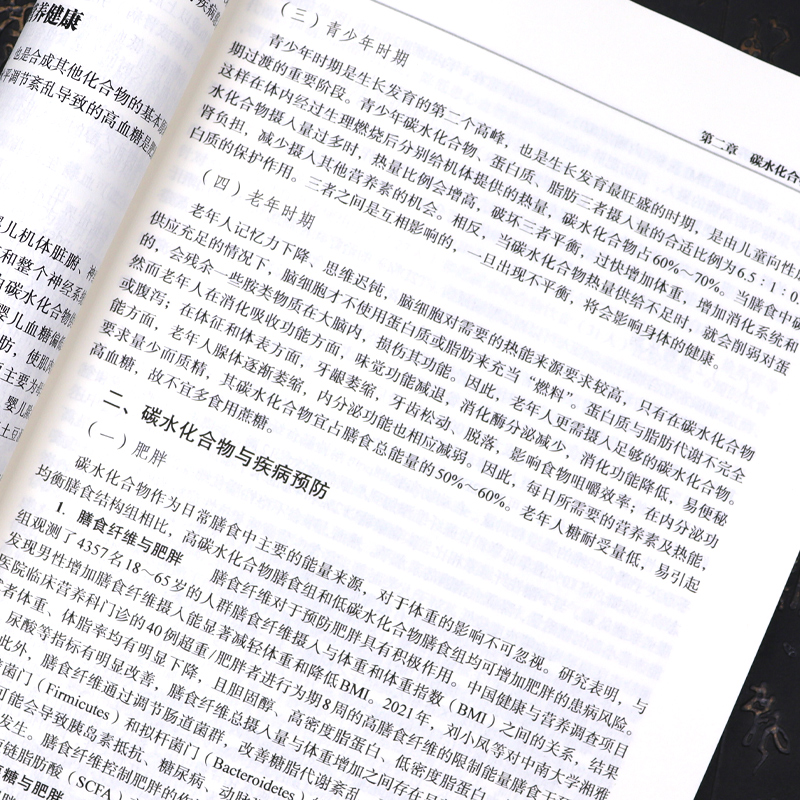 养健康
也是合成其他化合物的基本原
平调节紊乱导致的高血糖是
婴儿机体脏腑、神
和整个神经系
婴儿血糖偏
第二章 碳水化合
(三) 青少年时期
青少年时期是生长发育的第二个高峰，也是生长发育最旺盛的时期，是由儿童向性
期过渡的重要阶段。青少年碳水化合物、蛋白质、脂肪三者摄入量的合适比例为6.5：1：0.
这样在体内经过生理燃烧后分别给机体提供的热量，碳水化合物占60%~70%。当膳食中碳
水化合物摄入量过多时，热量比例会增高，破坏三者平衡，过快增加体重，增加消化系统和
肾负担，减少摄入其他营养素的机会。相反，当碳水化合物热量供给不足时，就会削弱对蛋
白质的保护作用。三者之间是互相影响的，一旦出现不平衡，将会影响身体的健康。
(四) 老年时期
老年人记忆力下降、思维迟钝，脑细胞对需要的热能来源要求较高，只有在碳水化合物
供应充足的情况下，脑细胞才不使用蛋白质或脂肪来充当“燃料”。蛋白质与脂肪代谢不完全
的，会残余一些胺类物质在大脑内，损伤其功能。因此，老年人更需摄入足够的碳水化合物。
然而老年人在消化吸收功能方面，味觉功能减退，消化酶分泌减少，消化功能降低，易便秘
或腹泻；在体征和体表方面，牙龈萎缩，牙齿松动、脱落，影响食物咀嚼效率；在内分泌功
能方面，老年人腺体逐渐萎缩，内分泌功能也相应减弱。因此，每日所需要的营养素及热能，
要求量少而质精，其碳水化合物宜占膳食总能量的50%~60%。老年人糖耐受量低，易引起
高血糖，故不宜多食用蔗糖。
二、碳水化合物与疾病预防
(一) 肥胖
碳水化合物作为日常膳食中主要的能量来源，对于体重的影响不可忽视。研究表明，与
均衡膳食结构组相比，高碳水化合物膳食组和低碳水化合物膳食组均可增加肥胖的患病风险。
1. 膳食纤维与肥胖 膳食纤维对于预防肥胖具有积极作用。中国健康与营养调查项目
组观测了4357名18~65岁的人群膳食纤维摄入与体重和体重指数（BMI）之间的关系，结果
发现男性增加膳食纤维摄入能显著减轻体重和降低BMI。2021年，刘小风等对中南大学湘雅
医院临床营养科门诊的40例超重/肥胖者进行为期8周的高膳食纤维的限制能量膳食干
者体重、体脂率均有明显下降，且胆固醇、高密度脂蛋白、低密度脂蛋白
尿酸等指标有明显改善，膳食纤维总摄入量与体重增加之间存在
此外，膳食纤维通过调节肠道菌群，改善糖脂代谢紊乱
菌门（Firmicutes）和拟杆菌门（Bacteroidetes）
可能会导致胰岛素抵抗、糖尿病、动脉
发生。膳食纤维控制肥胖的作
链脂肪酸（SCFA）
糖与肥胖